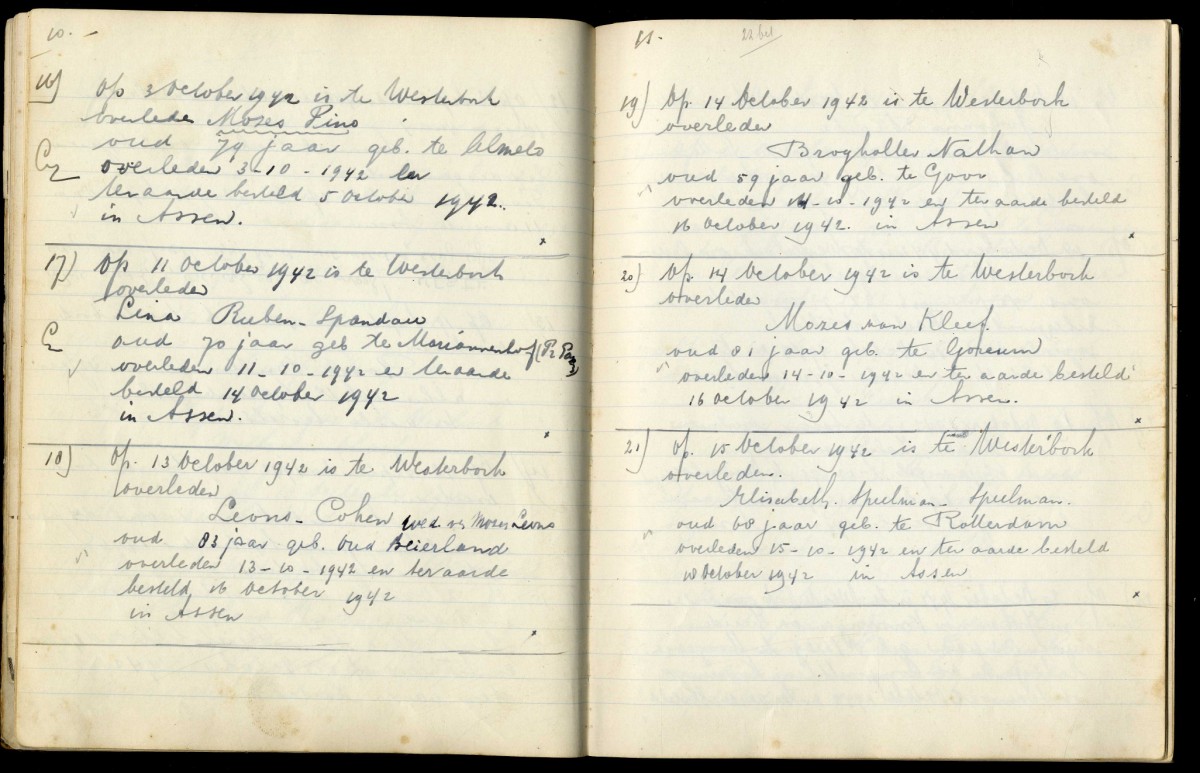 10.-
16) Op 3 October 1942 is te Westerbork
overleden Mozes Pino
oud 79 jaar geb. te Almelo
overleden 3-10-1942 en
ter aarde besteld 5 October 1942.
in Assen.
17) Op 11 October 1942 is te Westerbork
overleden
Lina Ruben-Spandau
oud 70 jaar geb te
overleden 11-10-1942 en ter aarde
besteld 14 October 1942
in Assen.
18) Op. 13 October 1942 is te Westerbork
overleden
Levons-Cohen wed v Mozes Levons
oud 83 jaar geb. Oud Beierland
overleden 13-10-1942 en ter aarde
besteld, 16 October 1942
in Assen
11.-
19) Op. 14 October 1942 is te Westerbork
overleden
Brogholter Nathan
oud 59 jaar geb. te Goor
overleden 14-10-1942 en ter aarde besteld
16 October 1942. in Assen
20) Op. 14 October 1942 is te Westerbork
overleden
Mozes van Kleef.
oud 81 jaar geb. te Gorcum
overleden 14-10-1942 en ter aarde besteld
16 October 1942 in Assen.
21) Op. 15 October 1942 is te Westerbork
overleden.
Elisabeth. Spelman-Spelman.
oud 68 jaar geb. te Rotterdam
overleden 15-10-1942 en ter aarde besteld
18 October 1942 in Assen